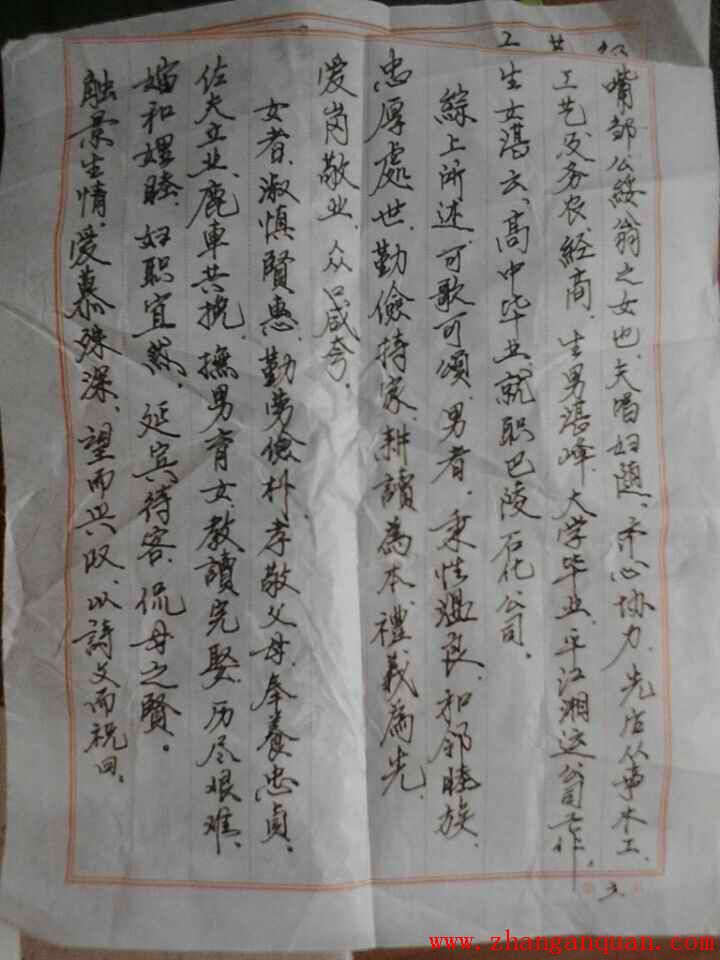 嘴邹公绥翁之女也、夫唱妇随、齐心协力、先后从事木工、
工艺及务农經商、生男湛峰、大学毕业、平江湘运公司工作。
生女湛云、高中毕业、就职巴陵石化公司。
綜上所述、可歌可頌、男者、秉性温良、和邻睦族、
忠厚處世、勤儉持家、耕讀為本、禮義為先、
爱岗敬业、众口咸夸、
女者、淑慎賢惠、勤劳儉朴、孝敬父母、奉養忠貞。
佐夫立业、鹿車共挽、撫男育女、教讀完娶、历尽艰难、
嫱和娌睦、妇职宜然、延宾待客、侃母之賢。
融景生情、爱慕殊深、望而兴叹、以詩文而祝曰。
3.
www.zhanganquan.com